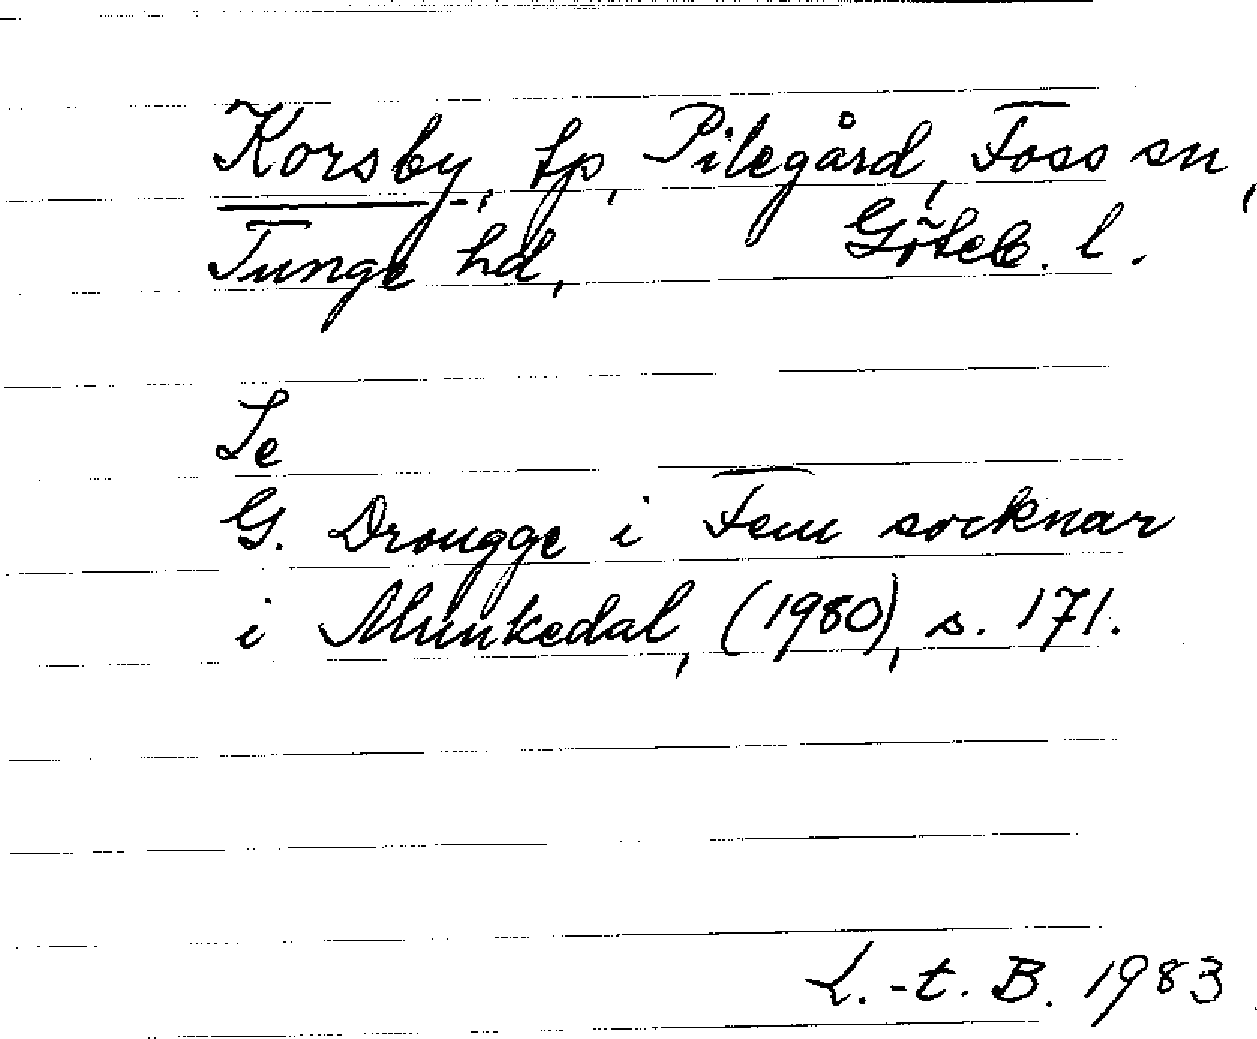 Korsby, tp, Pilegård, Foss sn,
Tunge hd, Göteb. l.
Se
G. Drougge i Fem socknar
i Munkedal, (1980), s. 171.
L.-t. B. 1983